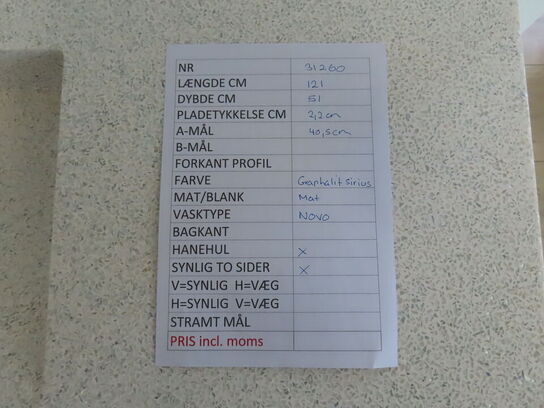 NR 31260
LÆNGDE CM 121
DYBDE CM 51
PLADETYKKELSE CM 3,2 cm
A-MÅL 40,5 cm
B-MÅL
FORKANT PROFIL
FARVE Graphalit sirius
MAT/BLANK Mat
VASKTYPE NOVO
BAGKANT
HANEHUL X
SYNLIG TO SIDER X
V=SYNLIG H=VÆG
H=SYNLIG V=VÆG
STRAMT MÅL
PRIS incl. moms